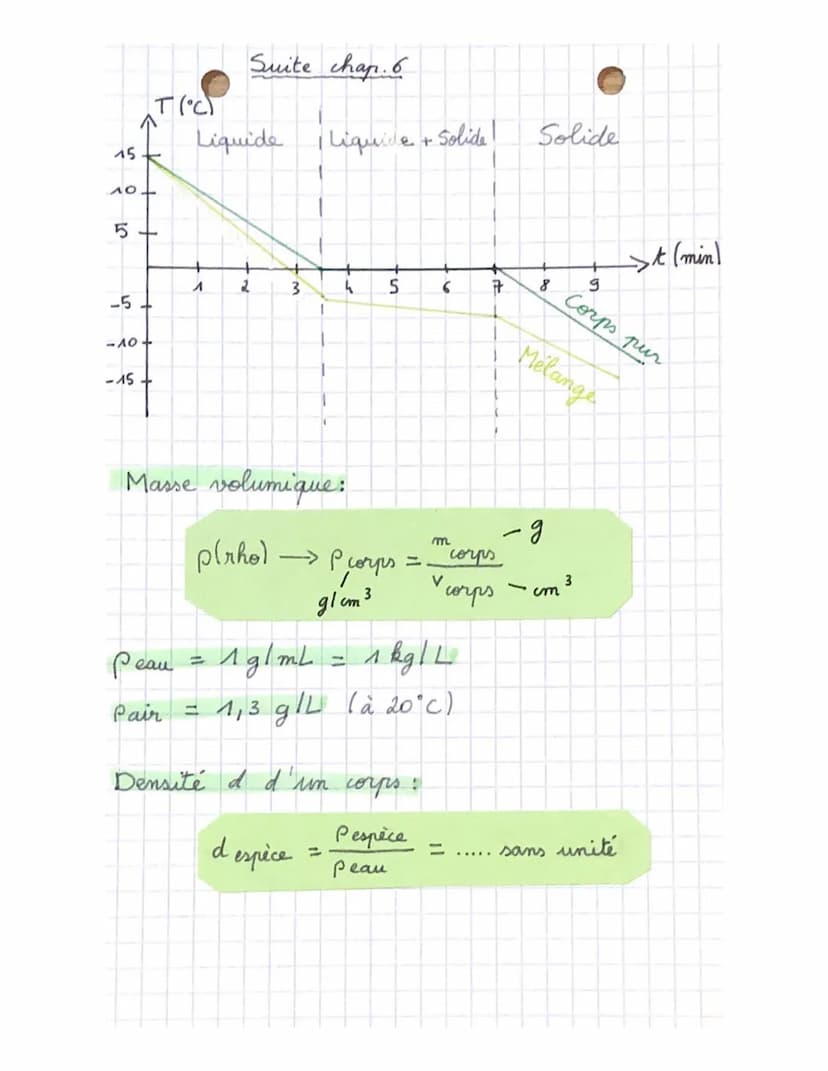 Suite chap. 6
T (°C)
Liquide Liquide + Solide Solide
15
10
5
t (min)
1 2 3 4 5 6 7 8 9
-5
-10
-15
Corps pur
Mélange
Masse volumique :
ρ(rho) → ρ corps = m corps / v corps
– g
g/cm³
– cm³
ρeau = 1 g/mL = 1 kg/L
ρair = 1,3 g/L (à 20°C)
Densité d d'un corps :
d espèce = ρ espèce / ρ eau = ..... sans unité